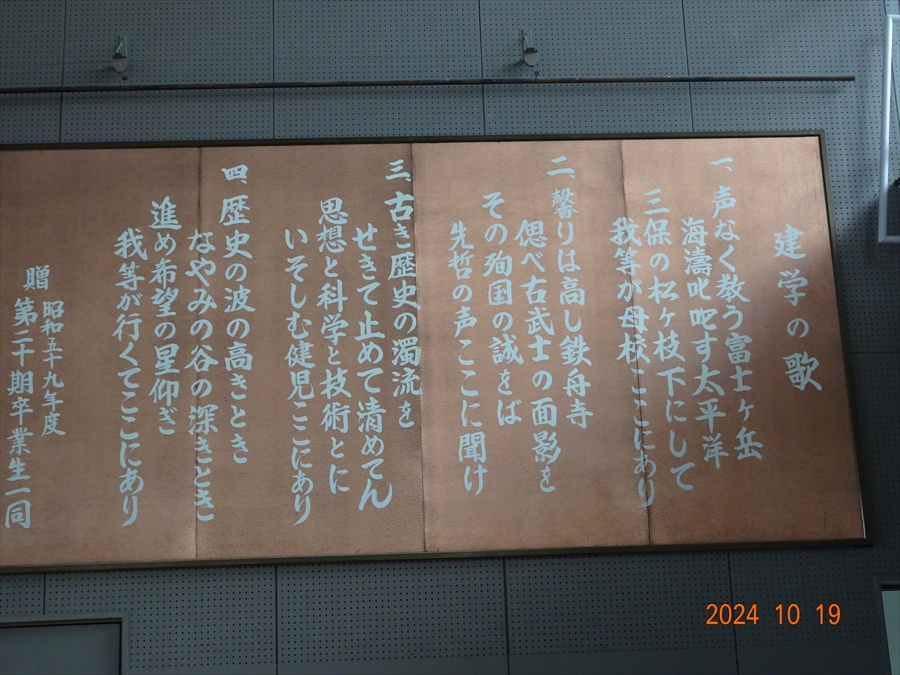 建学の歌
一、声なく教う富士ヶ岳
海濤叱咤す太平洋
三保の松ヶ枝下にして
我等が母校ここにあり
二、馨りは高し鉄舟寺
偲べ古武士の面影を
その殉国の誠をば
先哲の声ここに聞け
三、古き歴史の濁流を
せきて止めて清めてん
思想と科学と技術とに
いそしむ健児ここにあり
四、歴史の波の高きとき
なやみの谷の深きとき
進め希望の星仰ぎ
我等が行くてここにあり
昭和五十九年度
贈 第三十期卒業生一同
2024 10 19